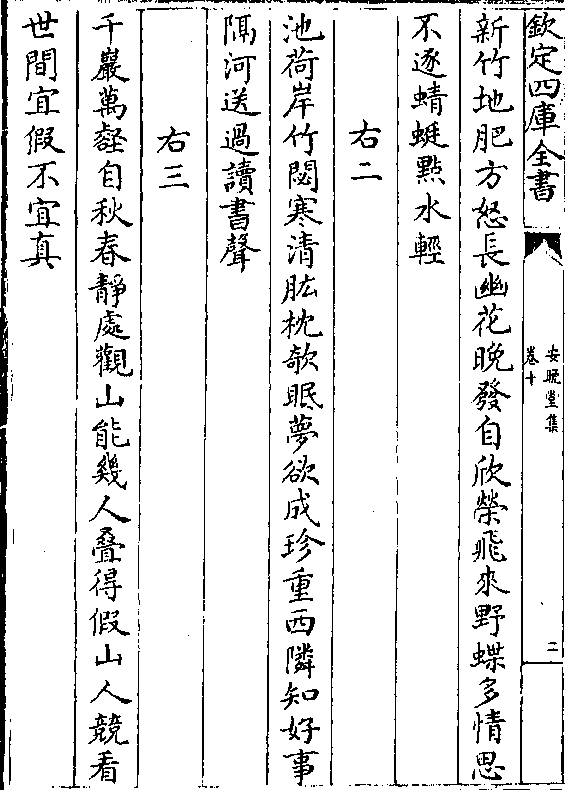 欽定四庫全書
安晚堂集
卷十
二
新竹地肥方怒長幽花晚發自欣榮飛來野蝶多情思
不逐蜻蜓㸃水輕
右二
池荷岸竹閟寒清肱枕欹眠夢欲成珍重西隣知好事
隔河送過讀書聲
右三
千巖萬壑自秋春靜處觀山能幾人叠得假山人競看
世間宜假不宜真